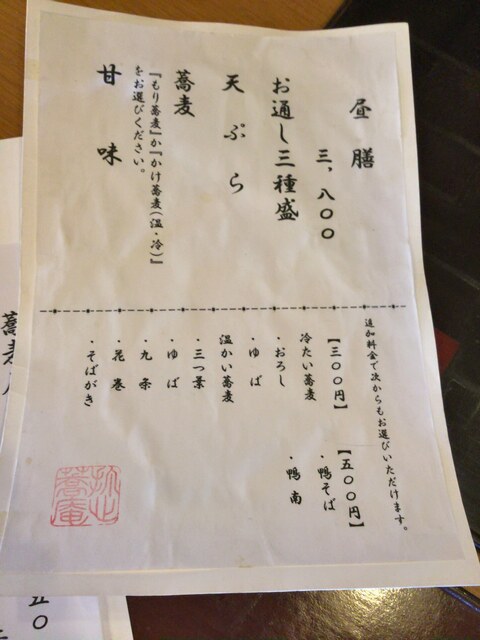 昼膳
三、八〇〇
お通し三種盛
天ぷら
蕎麦
『もり蕎麦』か『かけ蕎麦(温・冷)』
をお選びください。
甘味
追加料金で次からもお選びいただけます。
【三〇〇円】
冷たい蕎麦
・おろし
・ゆば
温かい蕎麦
・三つ葉
・ゆば
・九条
・花巻
・そばがき
【五〇〇円】
・鴨そば
・鴨南
五〇